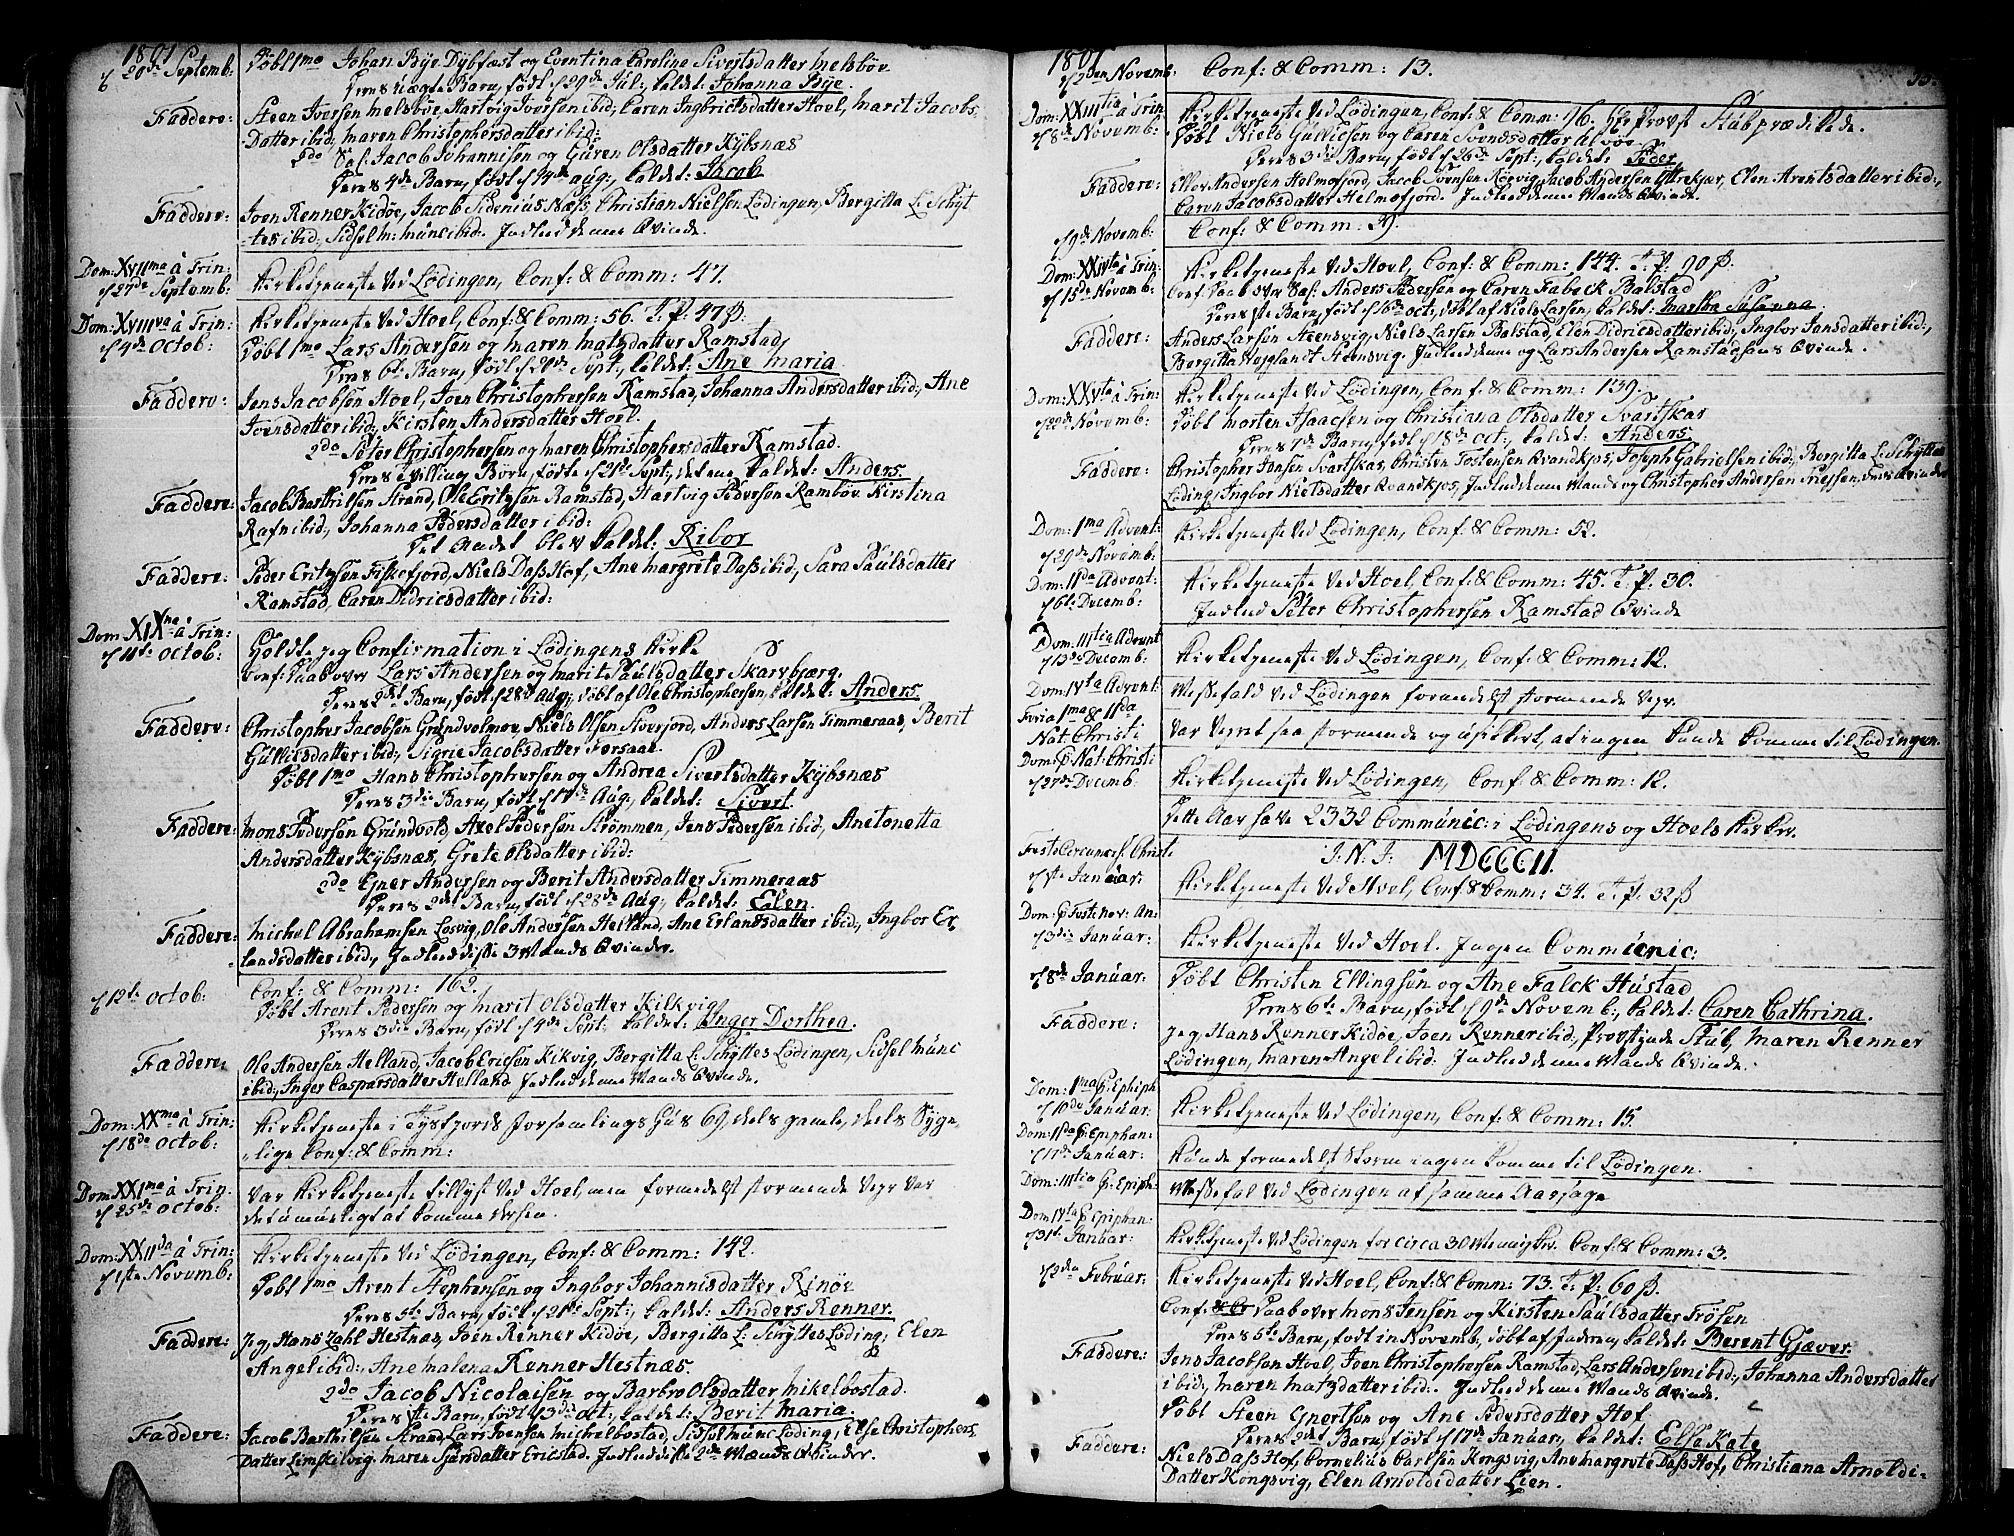 1801
d 20de Septemb: Döbt 1mo Johan Bye Dybfest og Eventina Carolina Sivertsdatter Melsböe
Deres uægte Barn, födt d 29de Jul: kaldet: Johanna Bye.
Faddere: Steen Iversen Melsböe, Hartvig Iversen ibid, Caren Ingbrictsdatter Hoel, Marit Jacobs
Datter ibid, Maren Christophersdatter ibid:
2do Sal: Jacob Johannisen og Guren Olsdatter Kybsnæs
Deres 4de Barn, födt d 14de Aug:, kaldet: Jacob
Faddere: Joen Renner Kidöe, Jacob Sidenius Næss, Christian Nielsen Lödingen, Bergitta L: Schyt
-tes ibid, Sidsel M: Munc ibid. Indled denne Qvinde.
Dom: XVIIma à Trin: d 27de Septemb: Kirketjeneste ved Lödingen, Conf: & Comm: 47.
Dom: XVIIIva à Trin: d 4de Octob: Kirketjeneste ved Hoel, Conf: & Comm: 56. T. P. 47 ß.
Döbt 1mo Lars Andersen og Maren Matzdatter Ramstad,
Deres 6te Barn, födt d 20de Sept:, kaldet: Ane Maria
Faddere: Jens Jacobsen Hoel, Joen Christophersen Ramstad, Johanna Andersdatter ibid, Ane
Joensdatter ibid, Kirsten Andersdatter Hoel.
2do Peter Christophersen og Maren Christophersdatter Ramstad.
Deres Tvilling Börn, födte d 21de Sept:, det ene kaldet: Anders.
Faddere: Jacob Barthilsen Strand, Ole Eritzsen Ramstad, Hartvig Pedersen Ramböe, Kirstina
Rafn ibid, Johanna Pedersdatter ibid:
Det Andet blev kaldet: Ribor
Faddere: Peder Eritzsen Fiskefjord, Niels Dass Hof, Ane Margrete Dass ibid, Sara Paulsdatter
Ramstad, Caren Didricsdatter ibid:
Dom: XIXna à Trin: d 11te Octob: Holdte jeg Confirmation i Lödingens Kirke
Conf: Daab over Lars Andersen og Marit Paulsdatter Skarvbjærg.
Deres 2det Barn, födt d 28de Aug:, döbt af Ole Christophersen, kaldet: Anders.
Faddere: Christopher Jacobsen Grundvolmoe, Niels Olsen Sverfjord, Anders Larsen Timmeraas, Berit
Gullicsdatter ibid, Sigrie Jacobsdatter Forsaae.
Döbt 1mo Hans Christophersen og Andrea Sivertsdatter Kybsnæs
Deres 3die Barn, födt d 17de Aug:, kaldet: Sivert.
Faddere: Mons Pedersen Grundvold, Axel Pedersen Strömmen, Jens Pedersen ibid, Ane Tonetta
Andersdatter Kybsnæs, Grete Olsdatter ibid:
2do Ener Andersen og Berit Andersdatter Timmeraas
Deres 2det Barn, födt d 28de Aug:, kaldet: Elen.
Faddere: Michel Abrahamsen Losvig, Ole Andersen Helland, Ane Erlandsdatter ibid, Ingbor Er,
landsdatter ibid, Indled disse 3 Mænds Qvinder.
d 12te Octob: Conf: & Comm: 162.
Döbt Arent Pedersen og Marit Olsdatter Kilkvig
Deres 3die Barn, födt d 4de Sept: kaldet: Inger Dorthea.
Faddere: Ole Andersen Helland, Jacob Ericsen Kikvig, Bergitta L: Schyttes Lödingen, Sidsel Munc
ibid, Inger Caspersdatter Helland. Indled denne Mands Qvinde.
Dom: XXma à Trin: d 18de Octob: Kirketjeneste i Tysfjords Forsamlings Hus 69, dels gamle, dels Syge,
,lige Conf: & Comm:
Dom: XXIma à Trin: d 25de Octob: Var Kirketjeneste tillyst ved Hoel, men formedelst stormende Vejr var
det umueligt at komme dersen.
Dom: XXIIda à Trin: d 1ste Novemb: Kirketjeneste ved Lödingen, Conf: & Comm: 142.
Döbt 1mo Arent Stephensen og Ingbor Johannisdatter Rinöe
Deres 5te Barn, födt d 21de Sept:, kaldet: Anders Renner.
Faddere: Jeg, Hans Zahl Hestnæs, Joen Renner Kidöe, Bergitta L: Schyttes Löding:, Elen
Angel ibid:, Ane Malena Renner Hestnæs.
2do Jacob Nicolaisen og Barbro Olsdatter Mikelbostad.
Deres 1ste Barn, födt d 3die Oct:, kaldet: Berit Maria.
Faddere: Jacob Barthilsen Strand, Lars Svensen Michelbostad, Sidsel Munc Löding:, Else Christophers
Datter Limskilvig, Maren Sjursdatter Ericstad. Indled disse 2de Mænds Qvinder.
1801
d 2den Novemb: Conf: & Comm: 13.
Dom: XXIIItia à Trin: d 8de Novemb: Kirketjeneste ved Lödingen, Conf: & Comm: 96. Hr Provst Stub prædikede.
Döbt Niels Gullicsen og Caren Svendsdatter Alvoe
Deres 3die Barn, födt d 26de Sept:, kaldet: Peder
Faddere: Eller Andersen Helmofjord, Jacob Svensen Röevig, Jacob Andersen Ottrekjær, Elen Arentsdatter ibid,
Caren Jacobsdatter Helmofjord. Indled denne Mands Qvinde.
d 9de Novemb: Conf: & Comm: 39.
Dom: XXIVta à Trin: d 15de Novemb: Kirketjeneste ved Hoel, Conf: & Comm: 144. T. P. 90 ß.
Conf: Daab over Sal: Anders Pedersen og Caren Fabeck Balstad
Deres 1ste Barn, födt d 16de Oct:, döbt af Niels Larsen, kaldet: Martha Susanna
Faddere: Anders Larsen Steensvig, Niels Larsen Balstad, Elen Didricsdatter ibid, Ingbor Jensdatter ibid,
Bergitta Hegglandt Steensvig. Indled denne og Lars Andersen Ramstad hans Qvinde.
Dom: XXVta à Trin: d 22de Novemb: Kirketjeneste ved Lödingen, Conf: & Comm: 139.
Döbt Morten Isaacsen og Christiana Olsdatter Svartskar
Deres 7de Barn, födt d 18de Oct:, kaldet: Anders
Faddere: Christopher Jonsen Svartskar, Christen Tostensen Kvandkjos, Joseph Gabrielsen ibid, Bergitta L: Schyttes
Löding:, Ingbor Nielsdatter Kvandkjos, Indled denne Mands og Christopher Andersen Qvinder
Dom: 1ma Advent: d 29de Novemb: Kirketjeneste ved Lödingen, Conf: & Comm: 52.
Dom: IIda Advent: d 6te Decemb: Kirketjeneste ved Hoel, Conf: & Comm: 45. T. P. 30.
Indled Peter Christophersen Ramstad Qvinde
Dom: IIItia Advent d 13de Decemb: Kirketjeneste ved Lödingen, Conf: & Comm: 12.
Dom: IVta Advent: Messefald ved Lödingen formedelst stormende Vejr.
Feria 1ma & IIda Nat: Christi Var Vejret saa stormende og usikkert, at ingen kunde komme til Lödingen.
Dom: p. Nat: Christi d 27de Decemb: Kirketjeneste ved Lödingen, Conf: & Comm: 12.
Dette Aar have 2332 Communic: i Lödingens og Hoels Kirker.
I. N. J. MDCCCII.
Fest: Circumcis: Christi d 1ste Januar: Kirketjeneste ved Hoel, Conf & Comm: 34. T. P. 32 ß
Dom: p. Fest: nov: An: d 3die Januar: Kirketjeneste ved Hoel. Ingen Communic:
d 8de Januar: Döbt Christen Ellingsen og Ane Falck Hustad
Deres 6te Barn, födt d 9de Novemb:, kaldet: Caren Cathrina.
Faddere: Jeg, Hans Renner Kidöe, Joen Renner ibid, Provstinde Stub, Maren Renner
Lödingen, Maren Angel ibid: Indled denne Mands Qvinde.
Dom: 1ma p. Epiph: d 10de Januar: Kirketjeneste ved Lödingen, Conf: & Comm: 15.
Dom: IIda p. Epiphan: d 17de Januar: Kunde formedelst Storm ingen komme til Lödingen.
Dom: IIItia p. Epiph: Messefal ved Lödingen af samme Aarsage
Dom: IVta p. Epiphan: d 31te Januar: Kirketjeneste ved Lödingen for circa 30 Mennisker. Conf: & Comm: 3.
d 2den Februar: Kirketjeneste ved Hoel, Conf: & Comm: 73. T. P. 60 ß.
Conf: Daab over Mons Jensen og Kirsten Paulsdatter Trösen
Deres 5te Barn, födt in Novemb:, döbt af Faderen, kaldet: Berent Gjæver.
Faddere: Jens Jacobsen Hoel, Joen Christophersen Ramstad, Lars Andersen ibid, Johanna Andersdatter
ibid, Maren Matzdatter ibid. Indled denne Mands Qvinde.
Döbt Steen Enertsen og Ane Pedersdatter Hof
Deres 2det Barn, födt d 17de Januar, kaldet: Else Kate
Faddere: Niels Dass Hof, Cornelius Carlsen Kongsvig, Ane Margrete Dass Hof, Christiana Arnoldi-
Datter Kongsvig, Elen Arnoldidatter Lien.